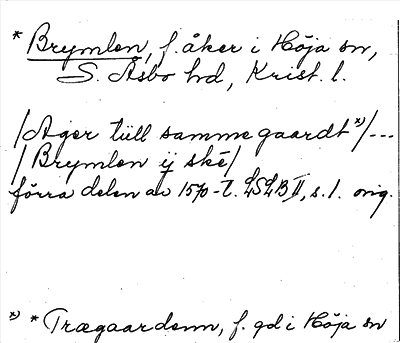 * Brymlen, f. åker i Höja sn,
S. Åsbo hd, Krist. l.
/Ager tüll samme gaardt *)/---
/Brymlen ij ske/
förra delen av 1570-t. LSLB II, s. 1. orig.
*) * Trægaardenn, f. gd i Höja sn